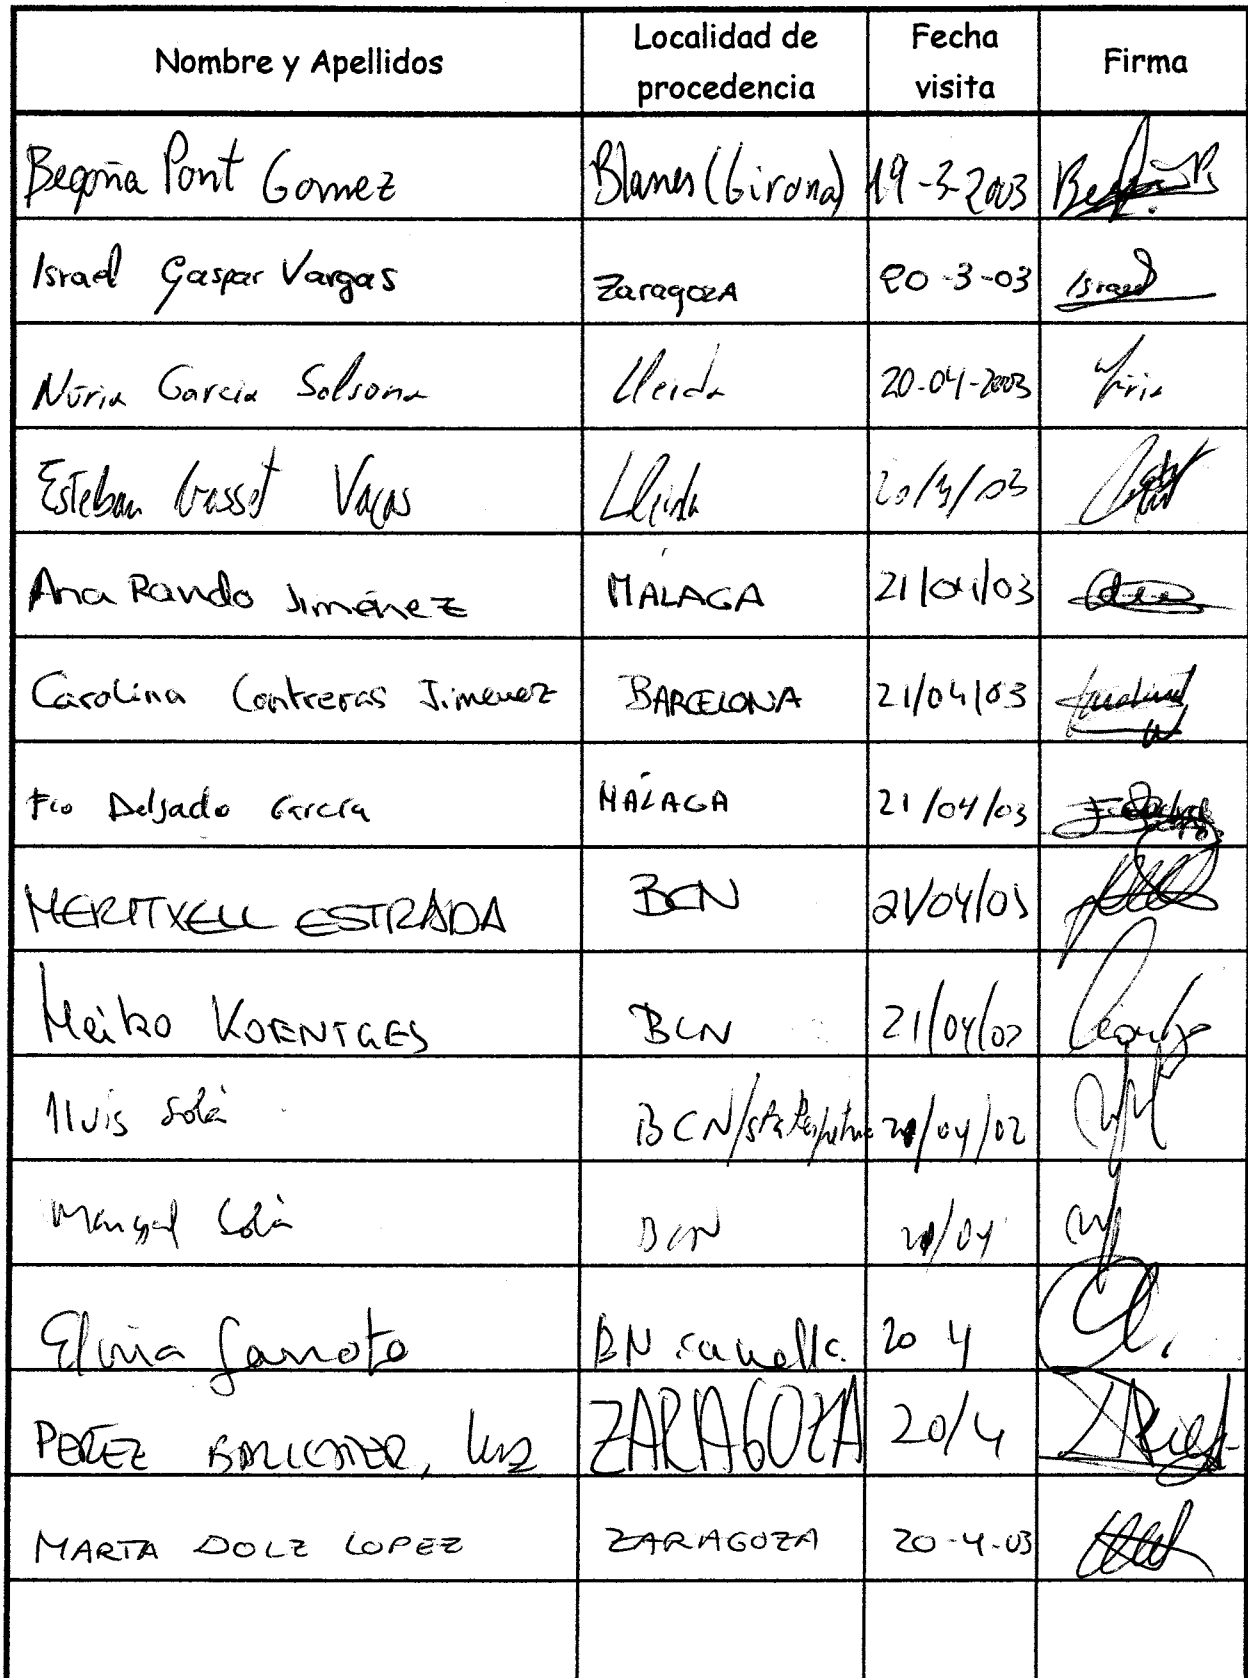 Nombre y Apellidos Localidad de procedencia Fecha visita Firma
Begoña Pont Gomez Blanes (Girona) 19-3-2003
Israel Gaspar Vargas ZaragozA 20-3-03 Israel
Núria Garcia Solsona Lleida 20-04-2003 Núria
Esteban Gasset Vacas Lleida
Ana Rando Jiménez MÁLAGA 21/04/03
Carolina Contreras Jimenez BARCELONA 21/04/03
Fco Delgado García MÁLAGA 21/04/03
MERITXELL ESTRADA BCN 21/04/03
Heiko KOENTGES BCN 21/04/03
Lluis Solà BCN/Sta Perpetua /04/02
Solà BCN /04
20 4
PEREZ ZARAGOZA 20/4
MARTA DOLZ LOPEZ ZARAGOZA 20-4-03